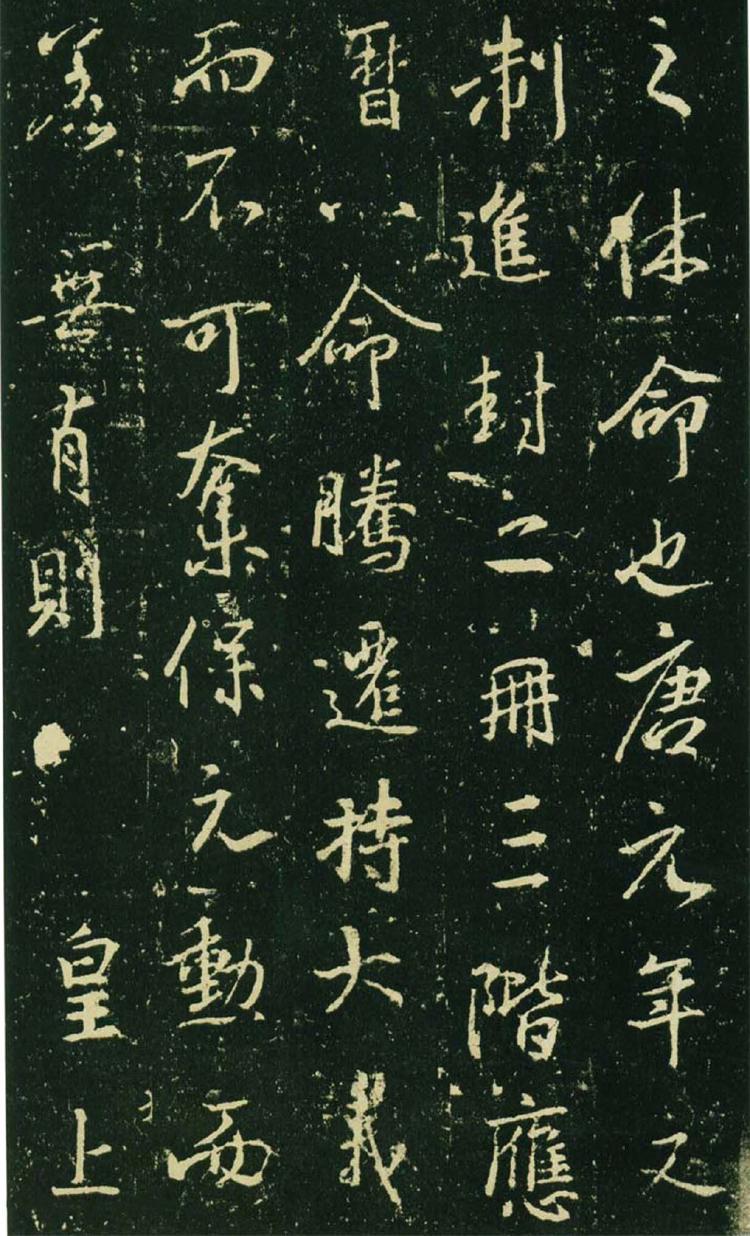 之休命也唐元年之
制進封二冊三階應
曆八命騰遷持大義
而不可奪保元勳而
無有則皇上